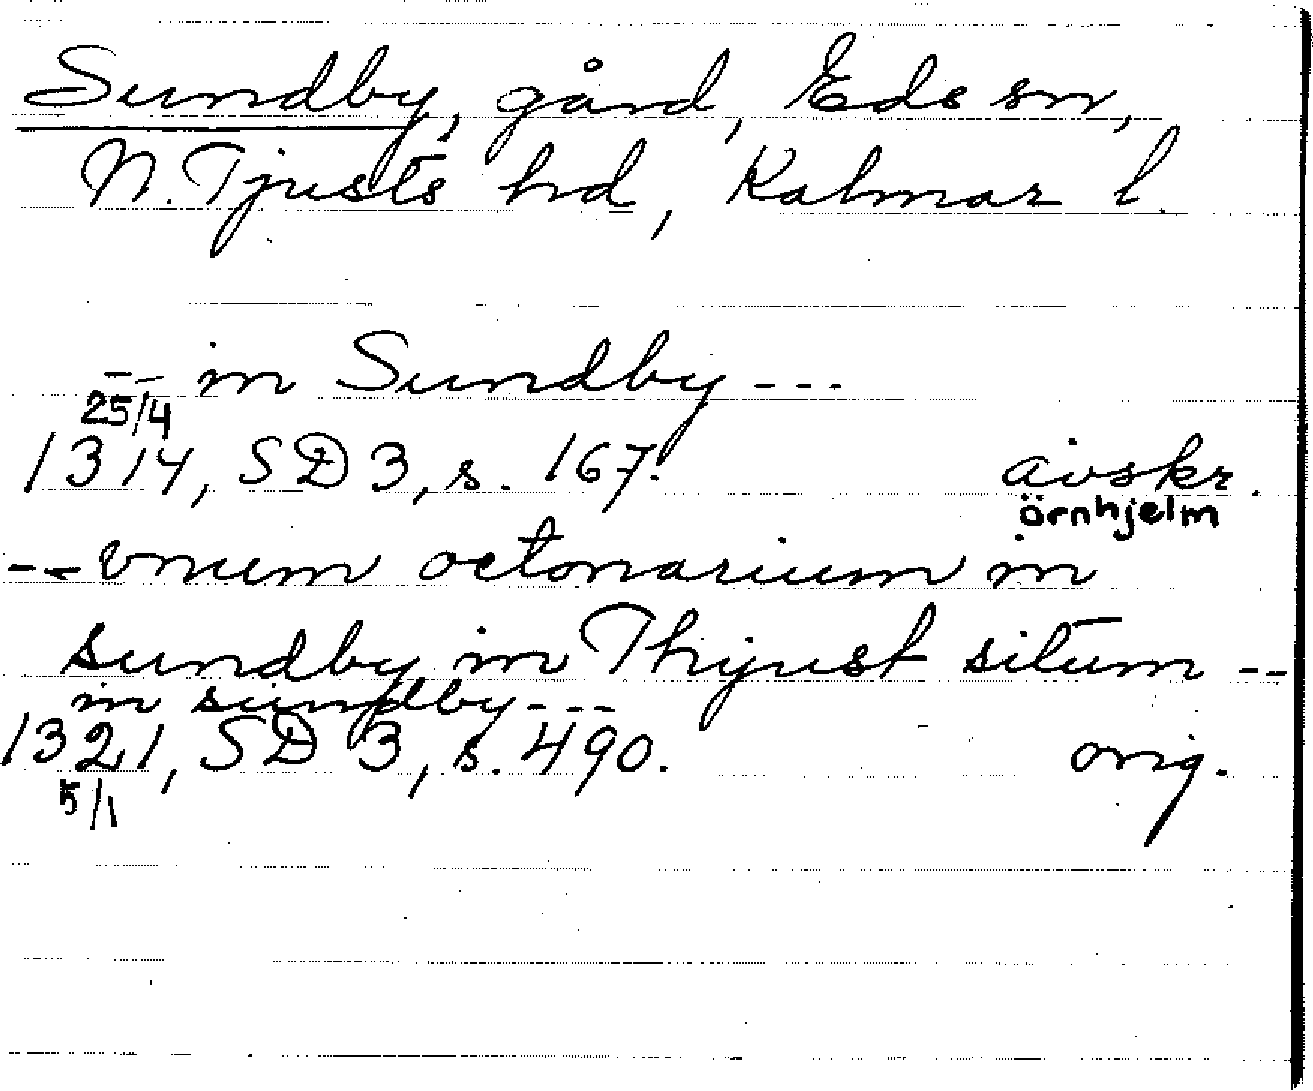 Sundby, gård, Eds sn,
N. Tjusts hd, Kalmar l.
-- in Sundby ---
25/4
1314, SD 3, s. 167. avskr.
örnhjelm
-- vnum octonarium in
sundby in Thyust situm --
in sundby ---
1321, SD 3, s. 490. orig.
5/1